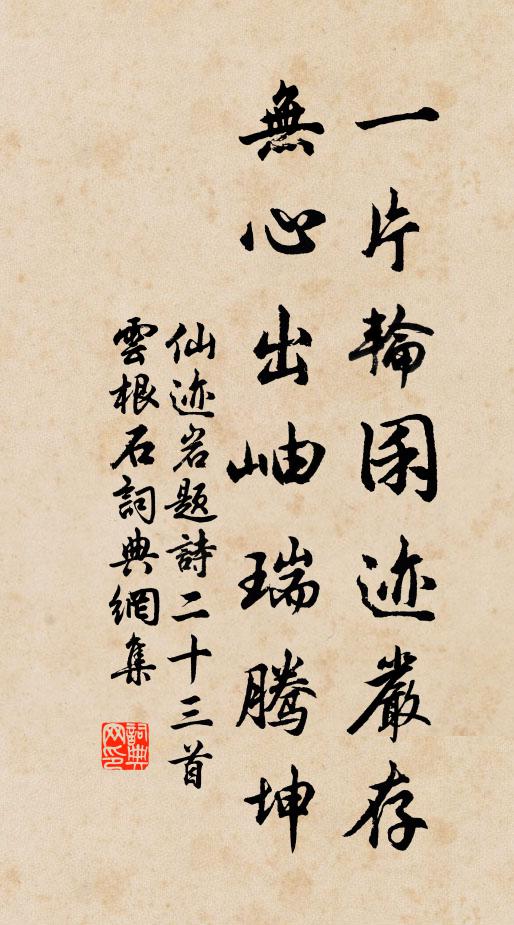 一片輪囷迹嚴存
無心出岫瑞騰坤
仙迹岩題詩二十三首
雲根石詞典網集
詞典网印